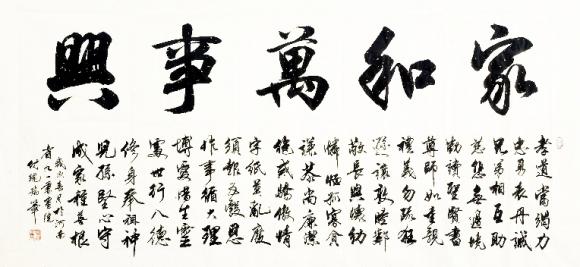 家和萬事興
孝道當竭力
忠勇表丹誠
兄弟相互助
慈悲無邊境
勤讀聖賢書
尊師如重親
禮義勿疏狂
遜讓敦睦鄰
敬長與懷幼
憐恤孤寡貧
謙恭尚廉潔
絕戒驕傲情
字紙莫亂廢
須報五穀恩
作事循天理
博愛惜生靈
處世行八德
修身奉祖神
兒孫堅心守
成家種善根
春月於河南
省八一書畫院